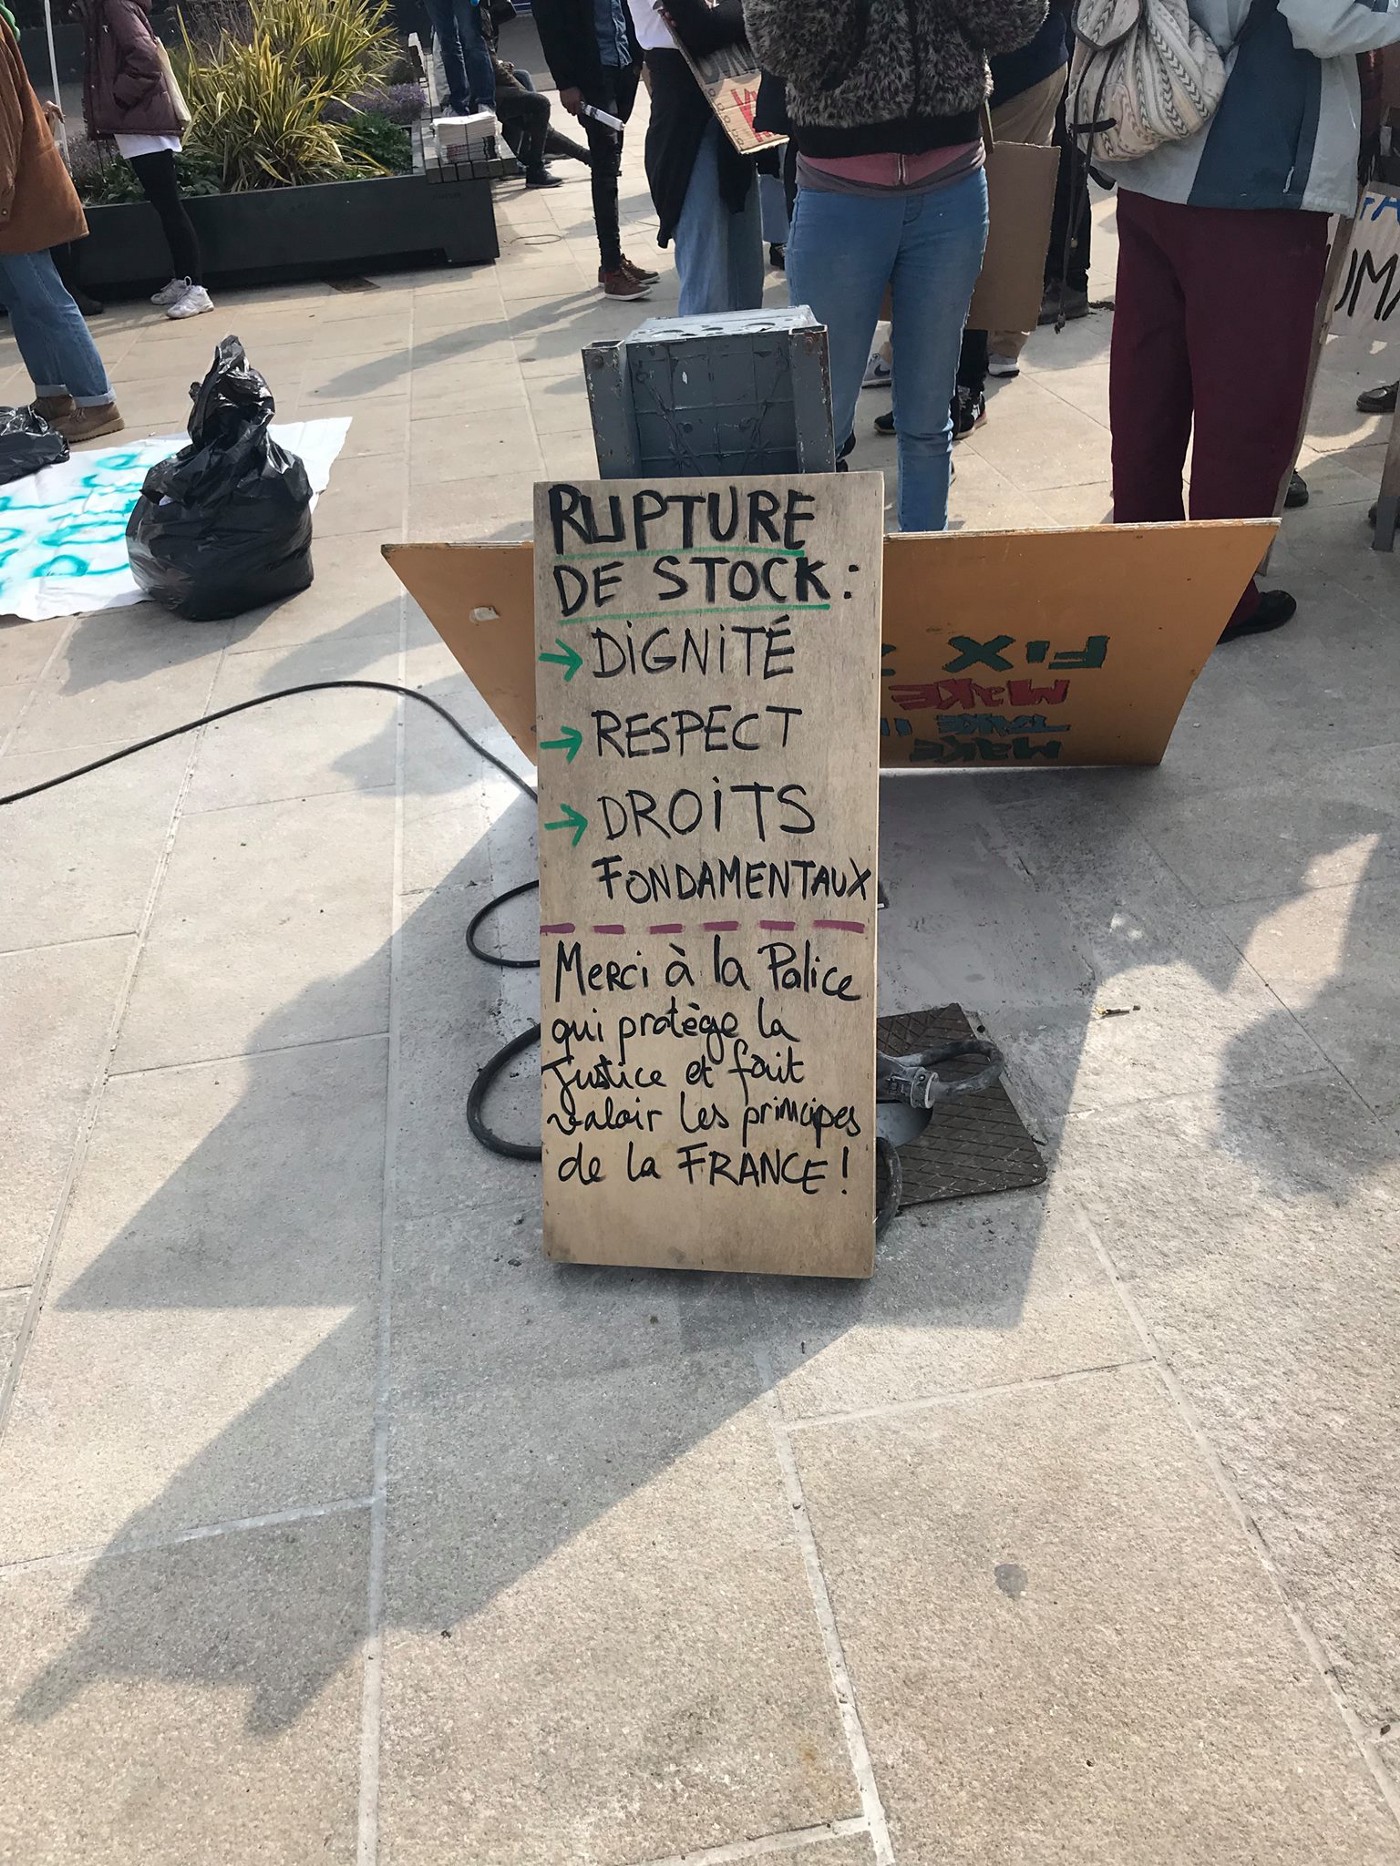 RUPTURE
DE STOCK :
→ DIGNITÉ
→ RESPECT
→ DROITS
FONDAMENTAUX
Merci à la Police
qui protège la
justice et fait
valoir les principes
de la FRANCE !
FIX
MAKE
TAKE
MAKE